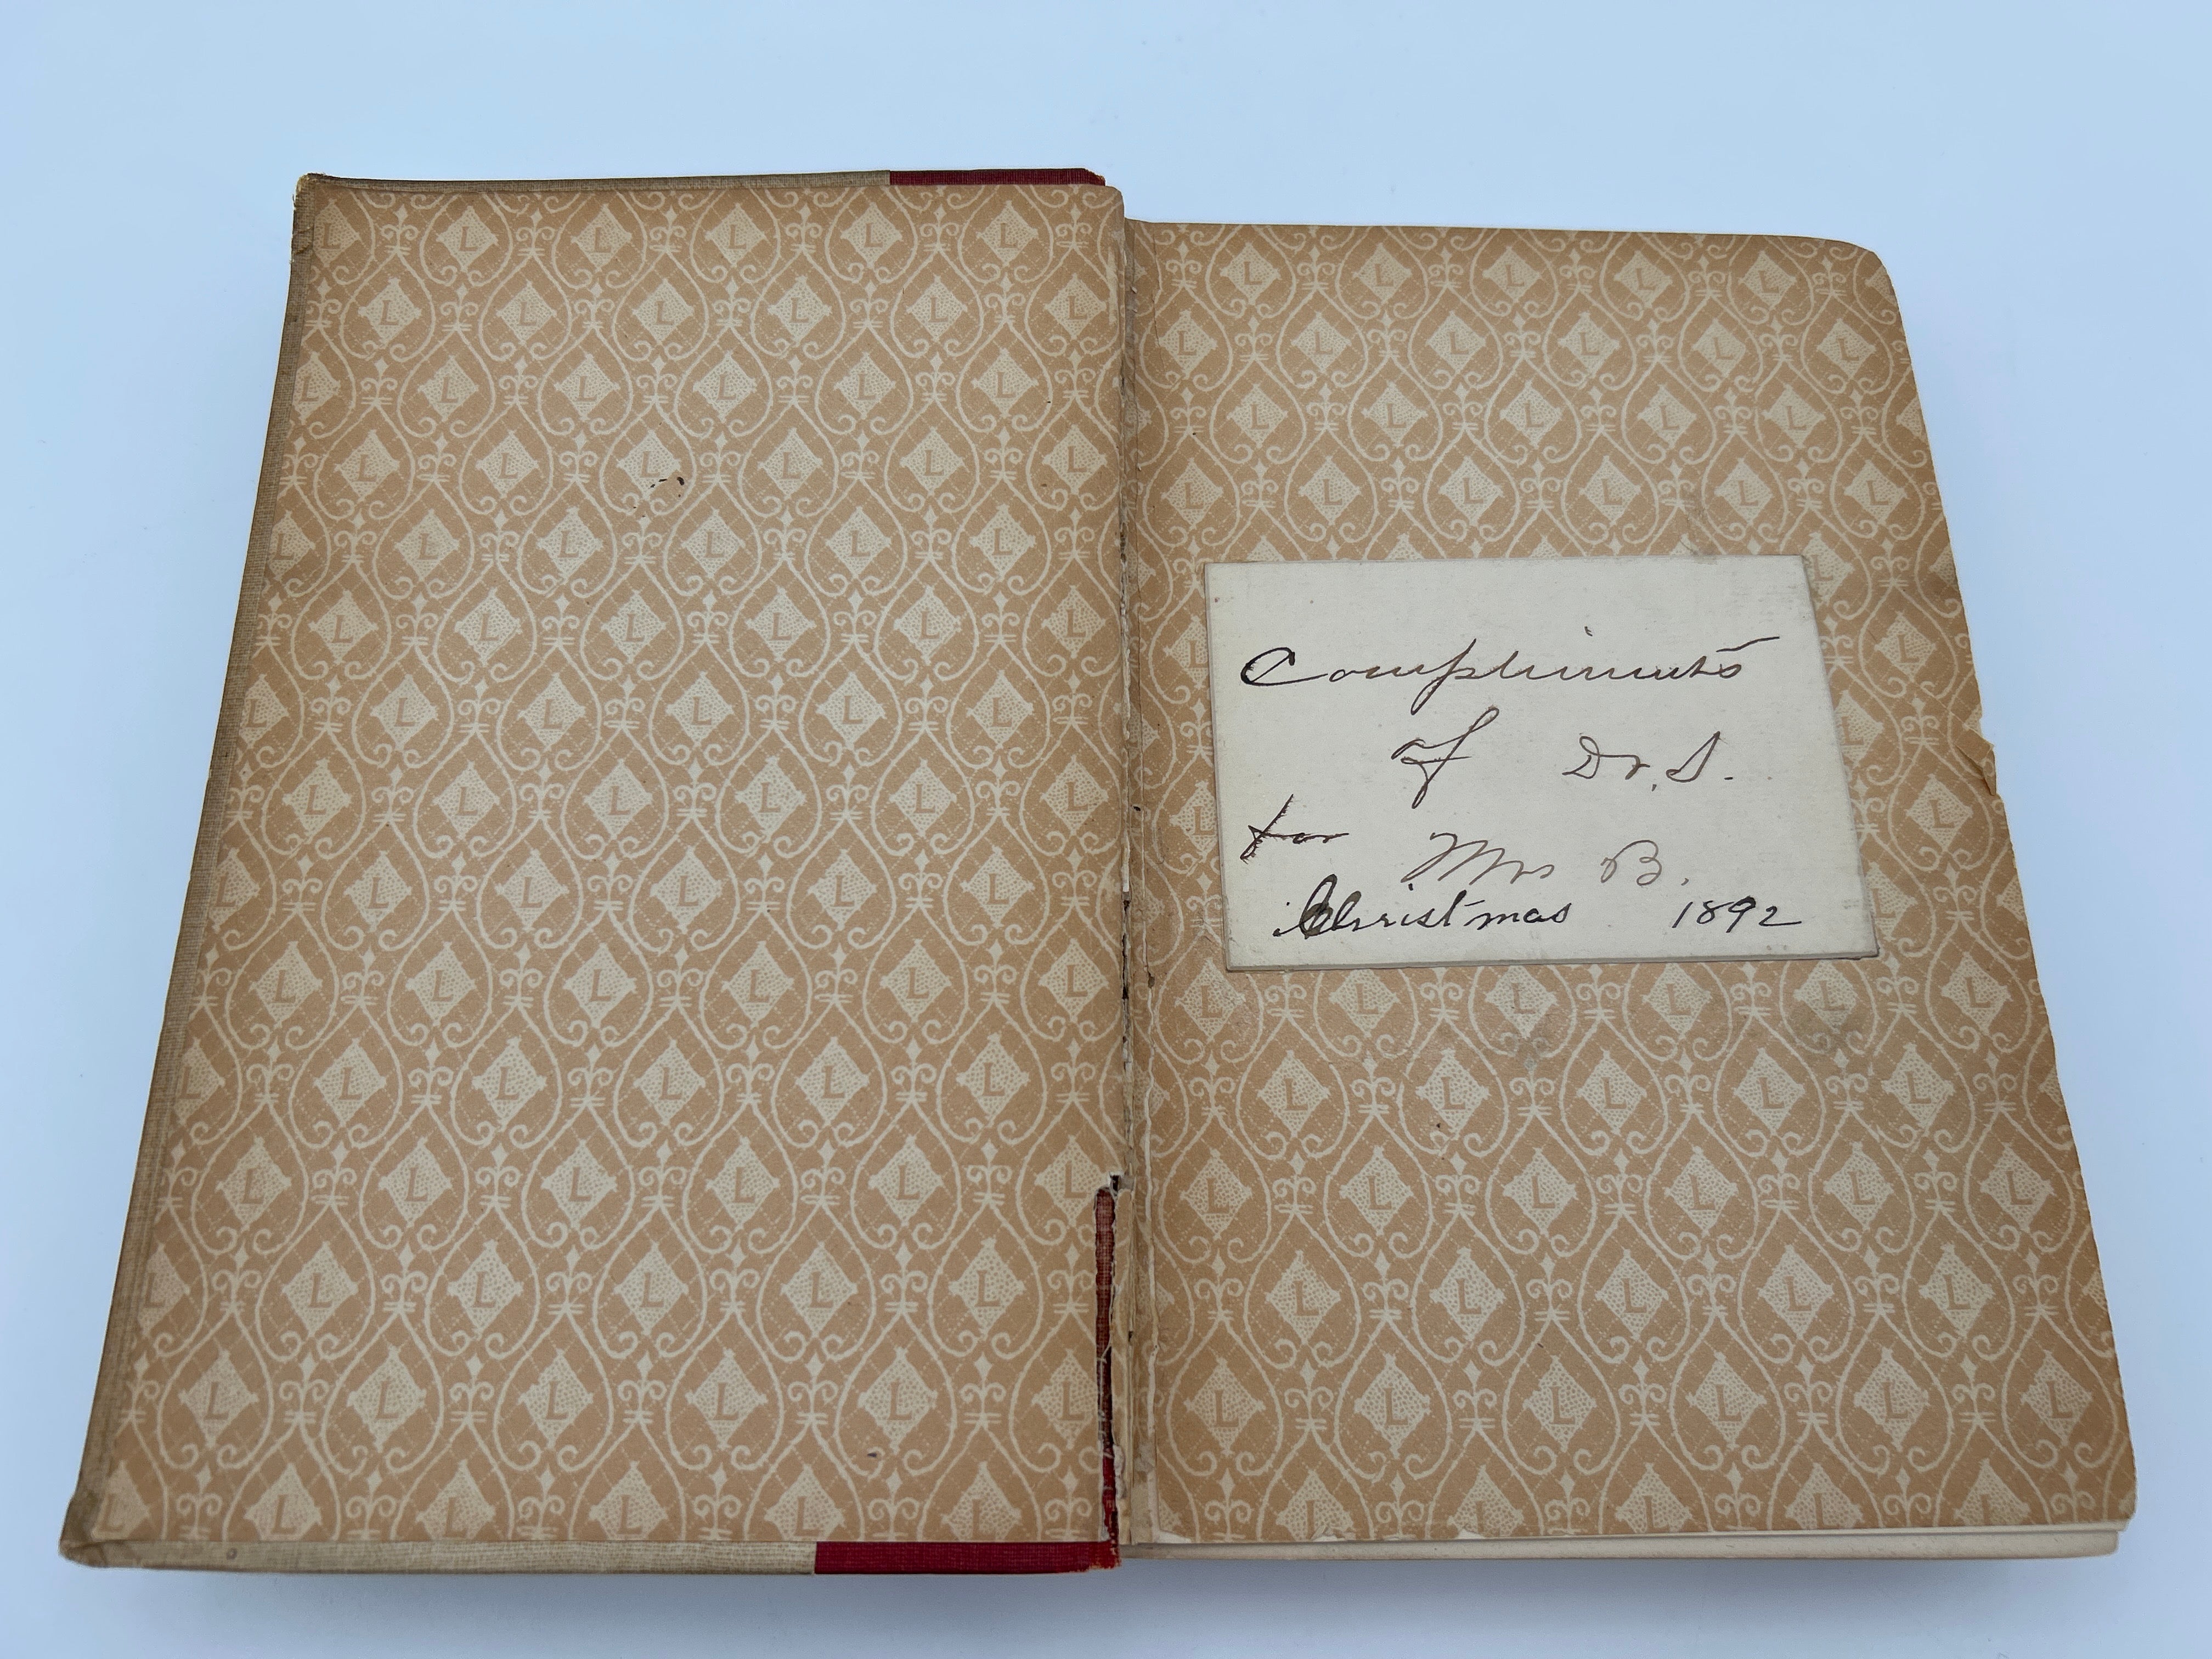 Compliments
of Dr. S.
for Mrs B.
Christmas 1892